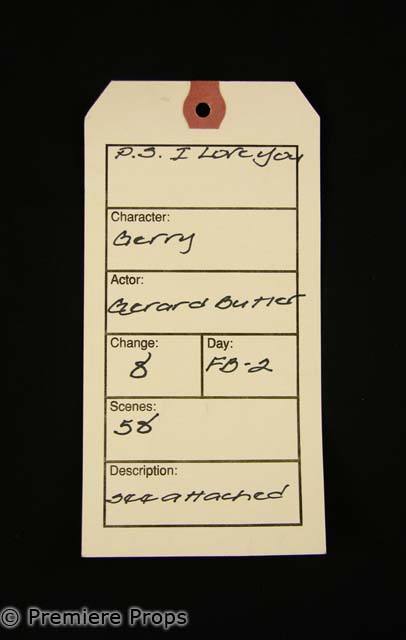 P.S. I Love You
Character:
Gerry
Actor:
Gerard Butler
Change: Day:
8 FB-2
Scenes:
58
Description:
see attached
© Premiere Props